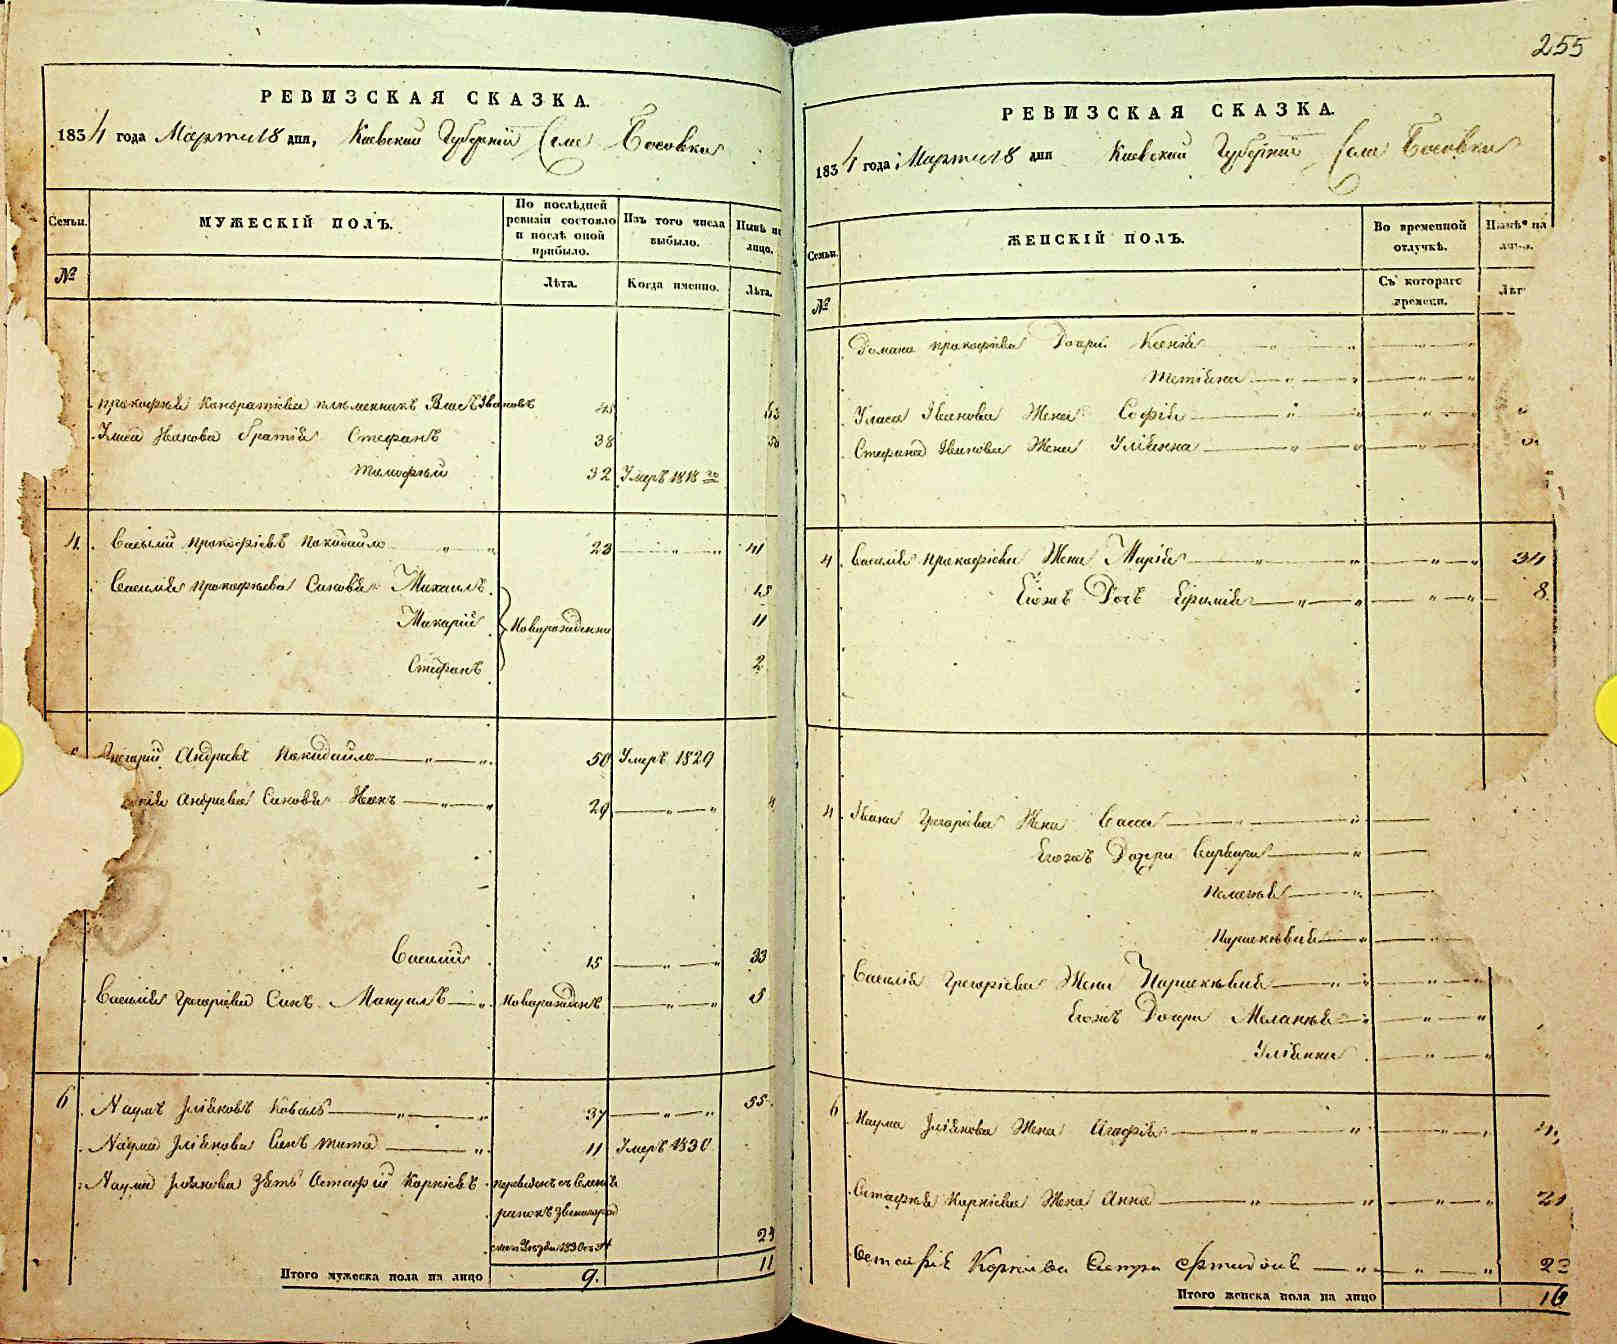 255
РЕВИЗСКАЯ СКАЗКА.
1834 года Марта 18 дня, Киевской Губернии Села Босовки
Семьи.
МУЖЕСКІЙ ПОЛЪ.
По послѣдней ревизіи состояло и послѣ оной прибыло.
Изъ того числа выбыло.
Нынѣ на лицо.
№
Лѣта.
Когда именно.
Лѣта.
Прокофѣя Кондратіева племенникъ Власъ Івановъ 45 63
Уласа Иванова братія Стефанъ 38
Тимофѣй 32 Умеръ 1818 го
4. Василій Прокофіевъ Покидайло 23 41
Василія Прокофѣева Сыновья Михаилъ 15
Макарій Новорожденны 11
Стефанъ 2
Григорій Андреевъ Покидайло 50 Умеръ 1829
Андреева Сыновья Иванъ 29
Василій 15 33
Василія Григоріева Сынъ Мануилъ Новорожденъ 5
6 Наумъ Уліяновъ Коваль 37 55
Наума Уліянова Сынъ Тита 11 Умеръ 1830
Наума Уліянова Зять Остафій Корніевъ переведенъ съ
Звенигород
Уѣзда 1830
Итого мужеска пола на лицо 9. 11
РЕВИЗСКАЯ СКАЗКА.
1834 года Марта 18 дня Киевской Губерніи Села Босовки
Семьи.
ЖЕНСКІЙ ПОЛЪ.
Во временной отлучкѣ.
Нынѣ на
№
Съ котораго времени.
Лѣт
Домана Прокофіева Дочери Ксенія
Тетіяна
Уласа Иванова Жена Софія
Стефана Иванова Жена Уліянна
4 Василія Прокофіева Жена Марія 34
Егожъ Дочь Ефимія 8.
4 Ивана Григоріева Жена Васса
Егожъ Дочери Варвара
Пелагѣя
Параскѣвія
Василія Григоріева Жена Параскѣвія
Егожъ Дочери Меланѣя
Уліянна
6 Наума Уліянова Жена Агафія
Остафѣя Корніева Жена Анна
Остафія Корніева Сестра 23
Итого женска пола на лицо 16